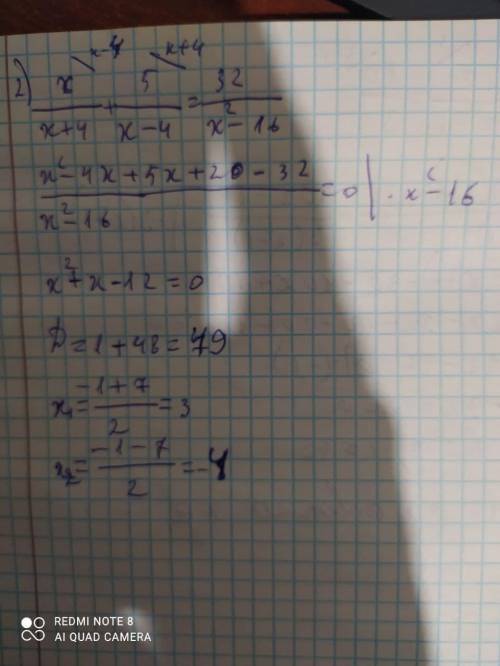 x-4 x+4
2) x/(x+4) + 5/(x-4) = 32/(x²-16)
(x²-4x+5x+20-32)/(x²-16) = 0 | · x²-16
x²+x-12=0
D=1+48=49
x₁=(-1+7)/2=3
x₂=(-1-7)/2=-4
REDMI NOTE 8
AI QUAD CAMERA